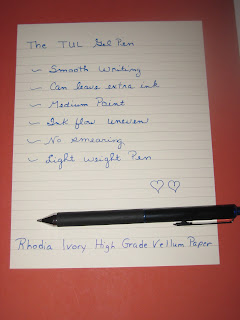 The TUL Gel Pen
Smooth Writing
Can leave extra ink
Medium Point
Ink flow uneven
No smearing
Light Weight Pen
Rhodia Ivory High Grade Vellum Paper